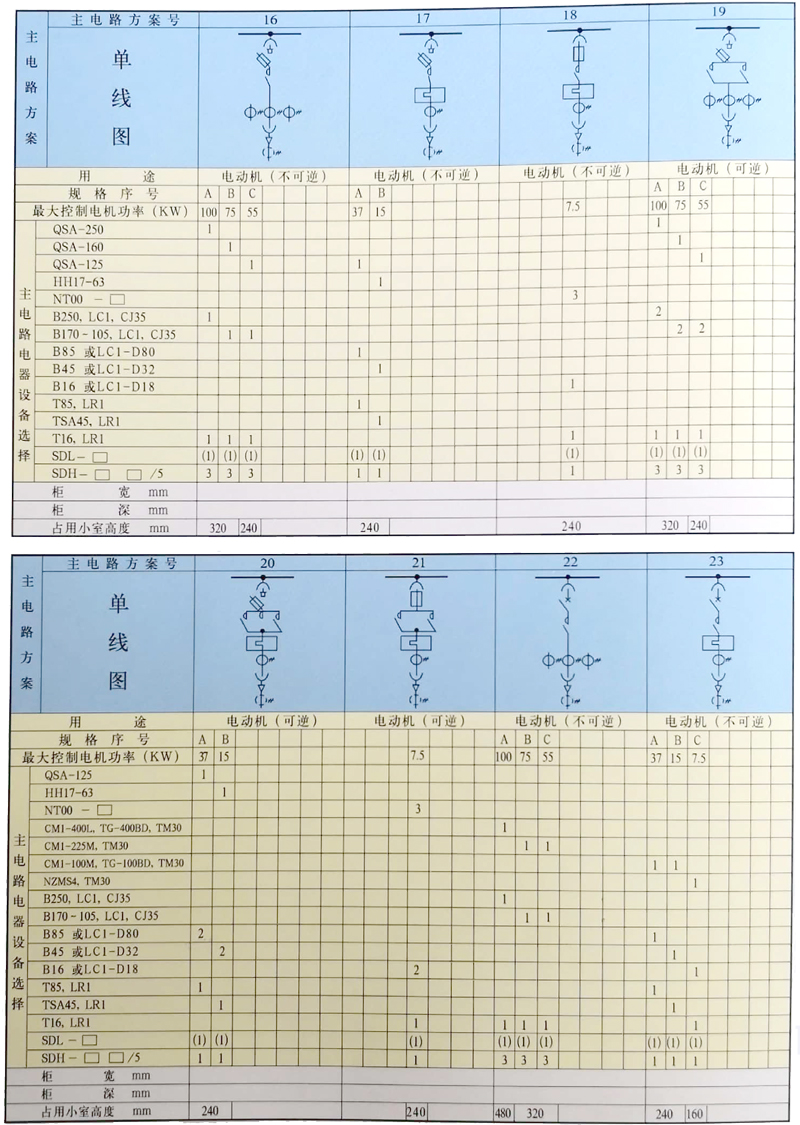 主电路方案 主电路方案号 16 17 18 19
单线图
用途 电动机（不可逆） 电动机（不可逆） 电动机（不可逆） 电动机（可逆）
规格序号 A B C A B A B C
最大控制电机功率（KW） 100 75 55 37 15 7.5 100 75 55
主电路电器设备选择
QSA-250 1 1
QSA-160 1 1
QSA-125 1 1 1
HH17-63 1
NT00 - □ 3
B250, LC1, CJ35 1 2
B170-105, LC1, CJ35 1 1 2 2
B85 或LC1-D80 1
B45 或LC1-D32 1
B16 或LC1-D18 1
T85, LR1 1
TSA45, LR1 1
T16, LR1 1 1 1 1 1 1 1
SDL- □ (1) (1) (1) (1) (1) (1) (1) (1) (1)
SDH- □ □ /5 3 3 3 1 1 1 3 3 3
柜宽 mm
柜深 mm
占用小室高度 mm 320 240 240 240 320 240
主电路方案 主电路方案号 20 21 22 23
单线图
用途 电动机（可逆） 电动机（可逆） 电动机（不可逆） 电动机（不可逆）
规格序号 A B A B C A B C
最大控制电机功率（KW） 37 15 7.5 100 75 55 37 15 7.5
主电路电器设备选择
QSA-125 1
HH17-63 1
NT00 - □ 3
CM1-400L, TG-400BD, TM30 1
CM1-225M, TM30 1 1
CM1-100M, TG-100BD, TM30 1 1
NZMS4, TM30 1
B250, LC1, CJ35 1
B170-105, LC1, CJ35 1 1
B85 或LC1-D80 2 1
B45 或LC1-D32 2 1
B16 或LC1-D18 2 1
T85, LR1 1 1
TSA45, LR1 1 1
T16, LR1 1 1 1 1 1
SDL- □ (1) (1) (1) (1) (1) (1) (1) (1) (1)
SDH- □ □ /5 1 1 1 3 3 3 1 1 1
柜宽 mm
柜深 mm
占用小室高度 mm 240 240 480 320 240 160